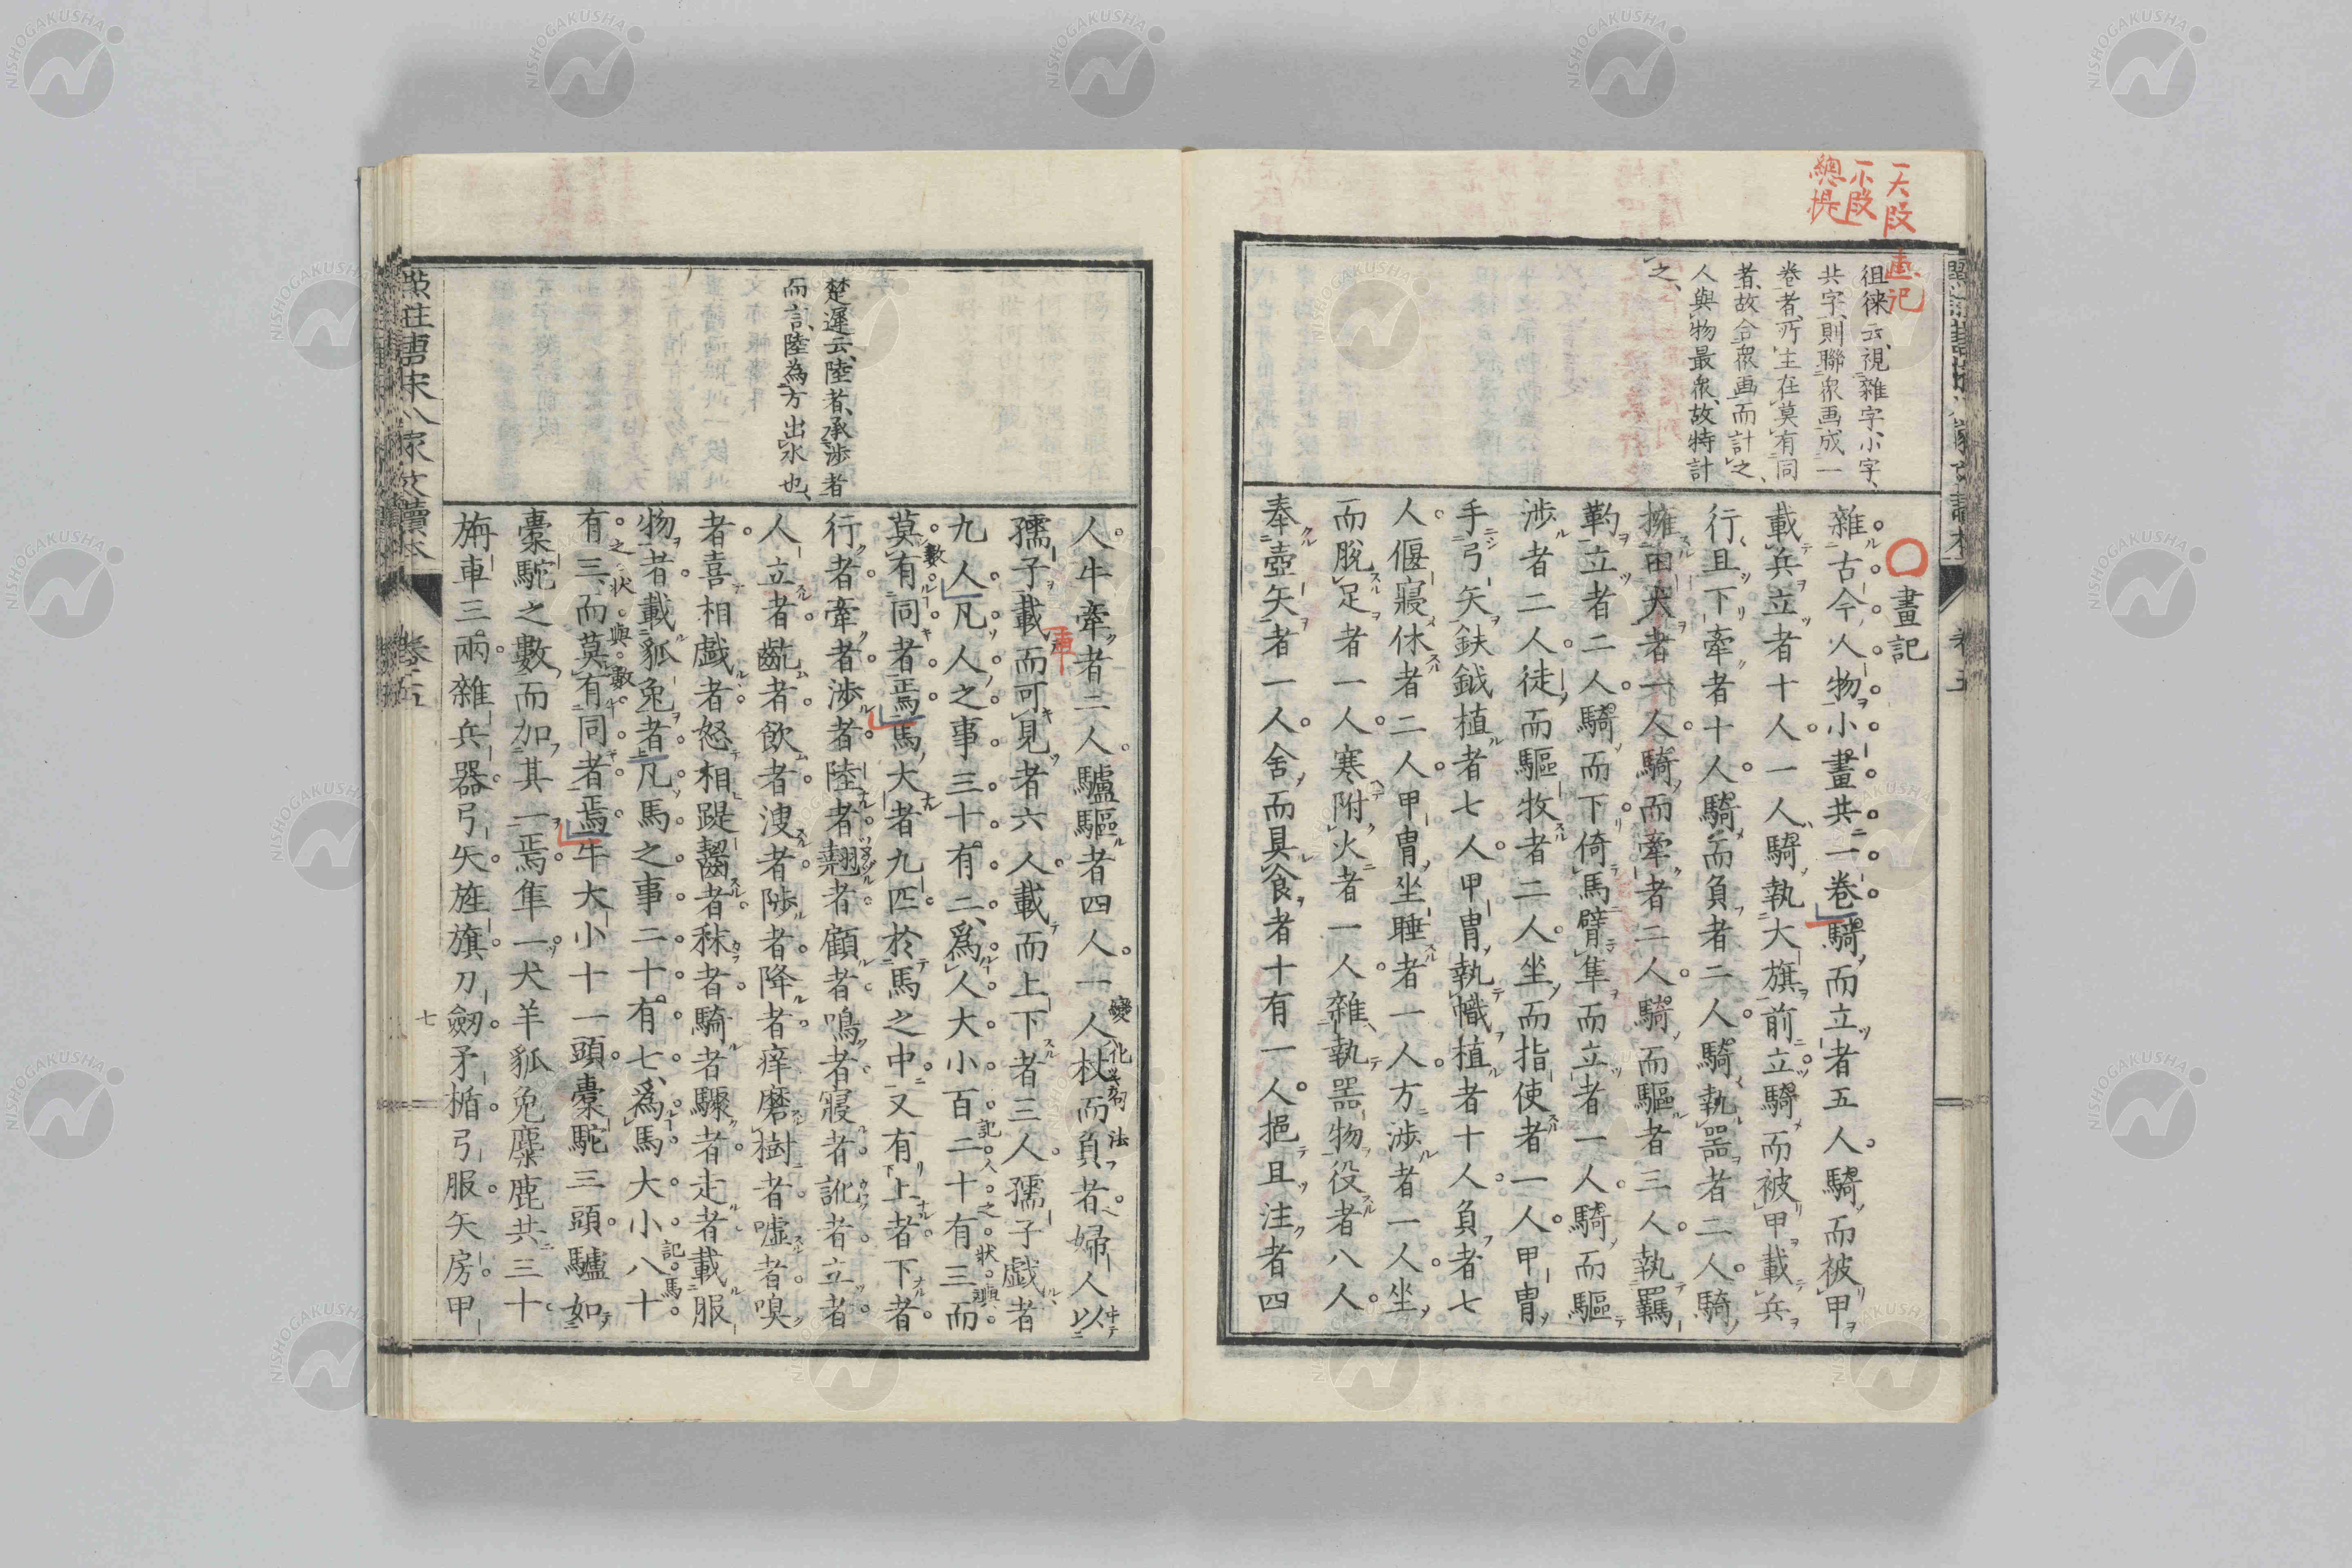 一大段
一小段
總提
画記
徂徠云、視雜字、小字、
共字、則聯衆画、成一
卷者、所主在莫有同
者、故合衆画而計之、
人與物最衆、故特計
之、
畫記
雜古今人物小畫共一卷騎而立者五人騎而被甲
載兵立者十人一人騎執大旗前立騎而被甲載兵
行且下牽者十人騎而負者二人騎執器者二人騎
擁田犬者一人騎而牽者二人騎而驅者三人執羈
靮立者二人騎而下倚馬臂隼而立者一人騎而驅
涉者二人徒而驅牧者二人坐而指使者一人甲冑
手弓矢鈇鉞植者七人甲冑執幟植者十人負者七
人偃寢休者二人甲冑坐睡者一人方涉者一人坐
而脫足者一人寒附火者一人雜執器物役者八人
奉壺矢者一人舍而具食者十有一人挹且注者四
卷五
楚遲云、陸者、承涉者
而言、陸為方出水也、
人牛牽者二人驢驅者四人一人杖而負者婦人以
變化其句法
孺子載而可見者六人載而上下者三人孺子戲者
車
九人凡人之事三十有二、爲人大小百二十有三而
記人之狀與
莫有同者焉馬大者九匹於馬之中又有上者下者
數
行者牽者涉者陸者翹者顧者鳴者寢者訛者立者
人立者齕者飲者溲者陟者降者痒磨樹者噓者嗅
者喜相戲者怒相踶齧者秣者騎者驟者走者載服
物者載狐兔者凡馬之事二十有七、爲馬大小八十
記馬
有三、而莫有同者焉牛大小十一頭橐駝三頭驢如
之狀與數
橐駝之數而加其一焉隼一犬羊狐兔麋鹿共三十
旃車三兩雜兵器弓矢旌旗刀劒矛楯弓服矢房甲
點註唐宋八家文讀本
卷五
七
NISHOGAKUSHA